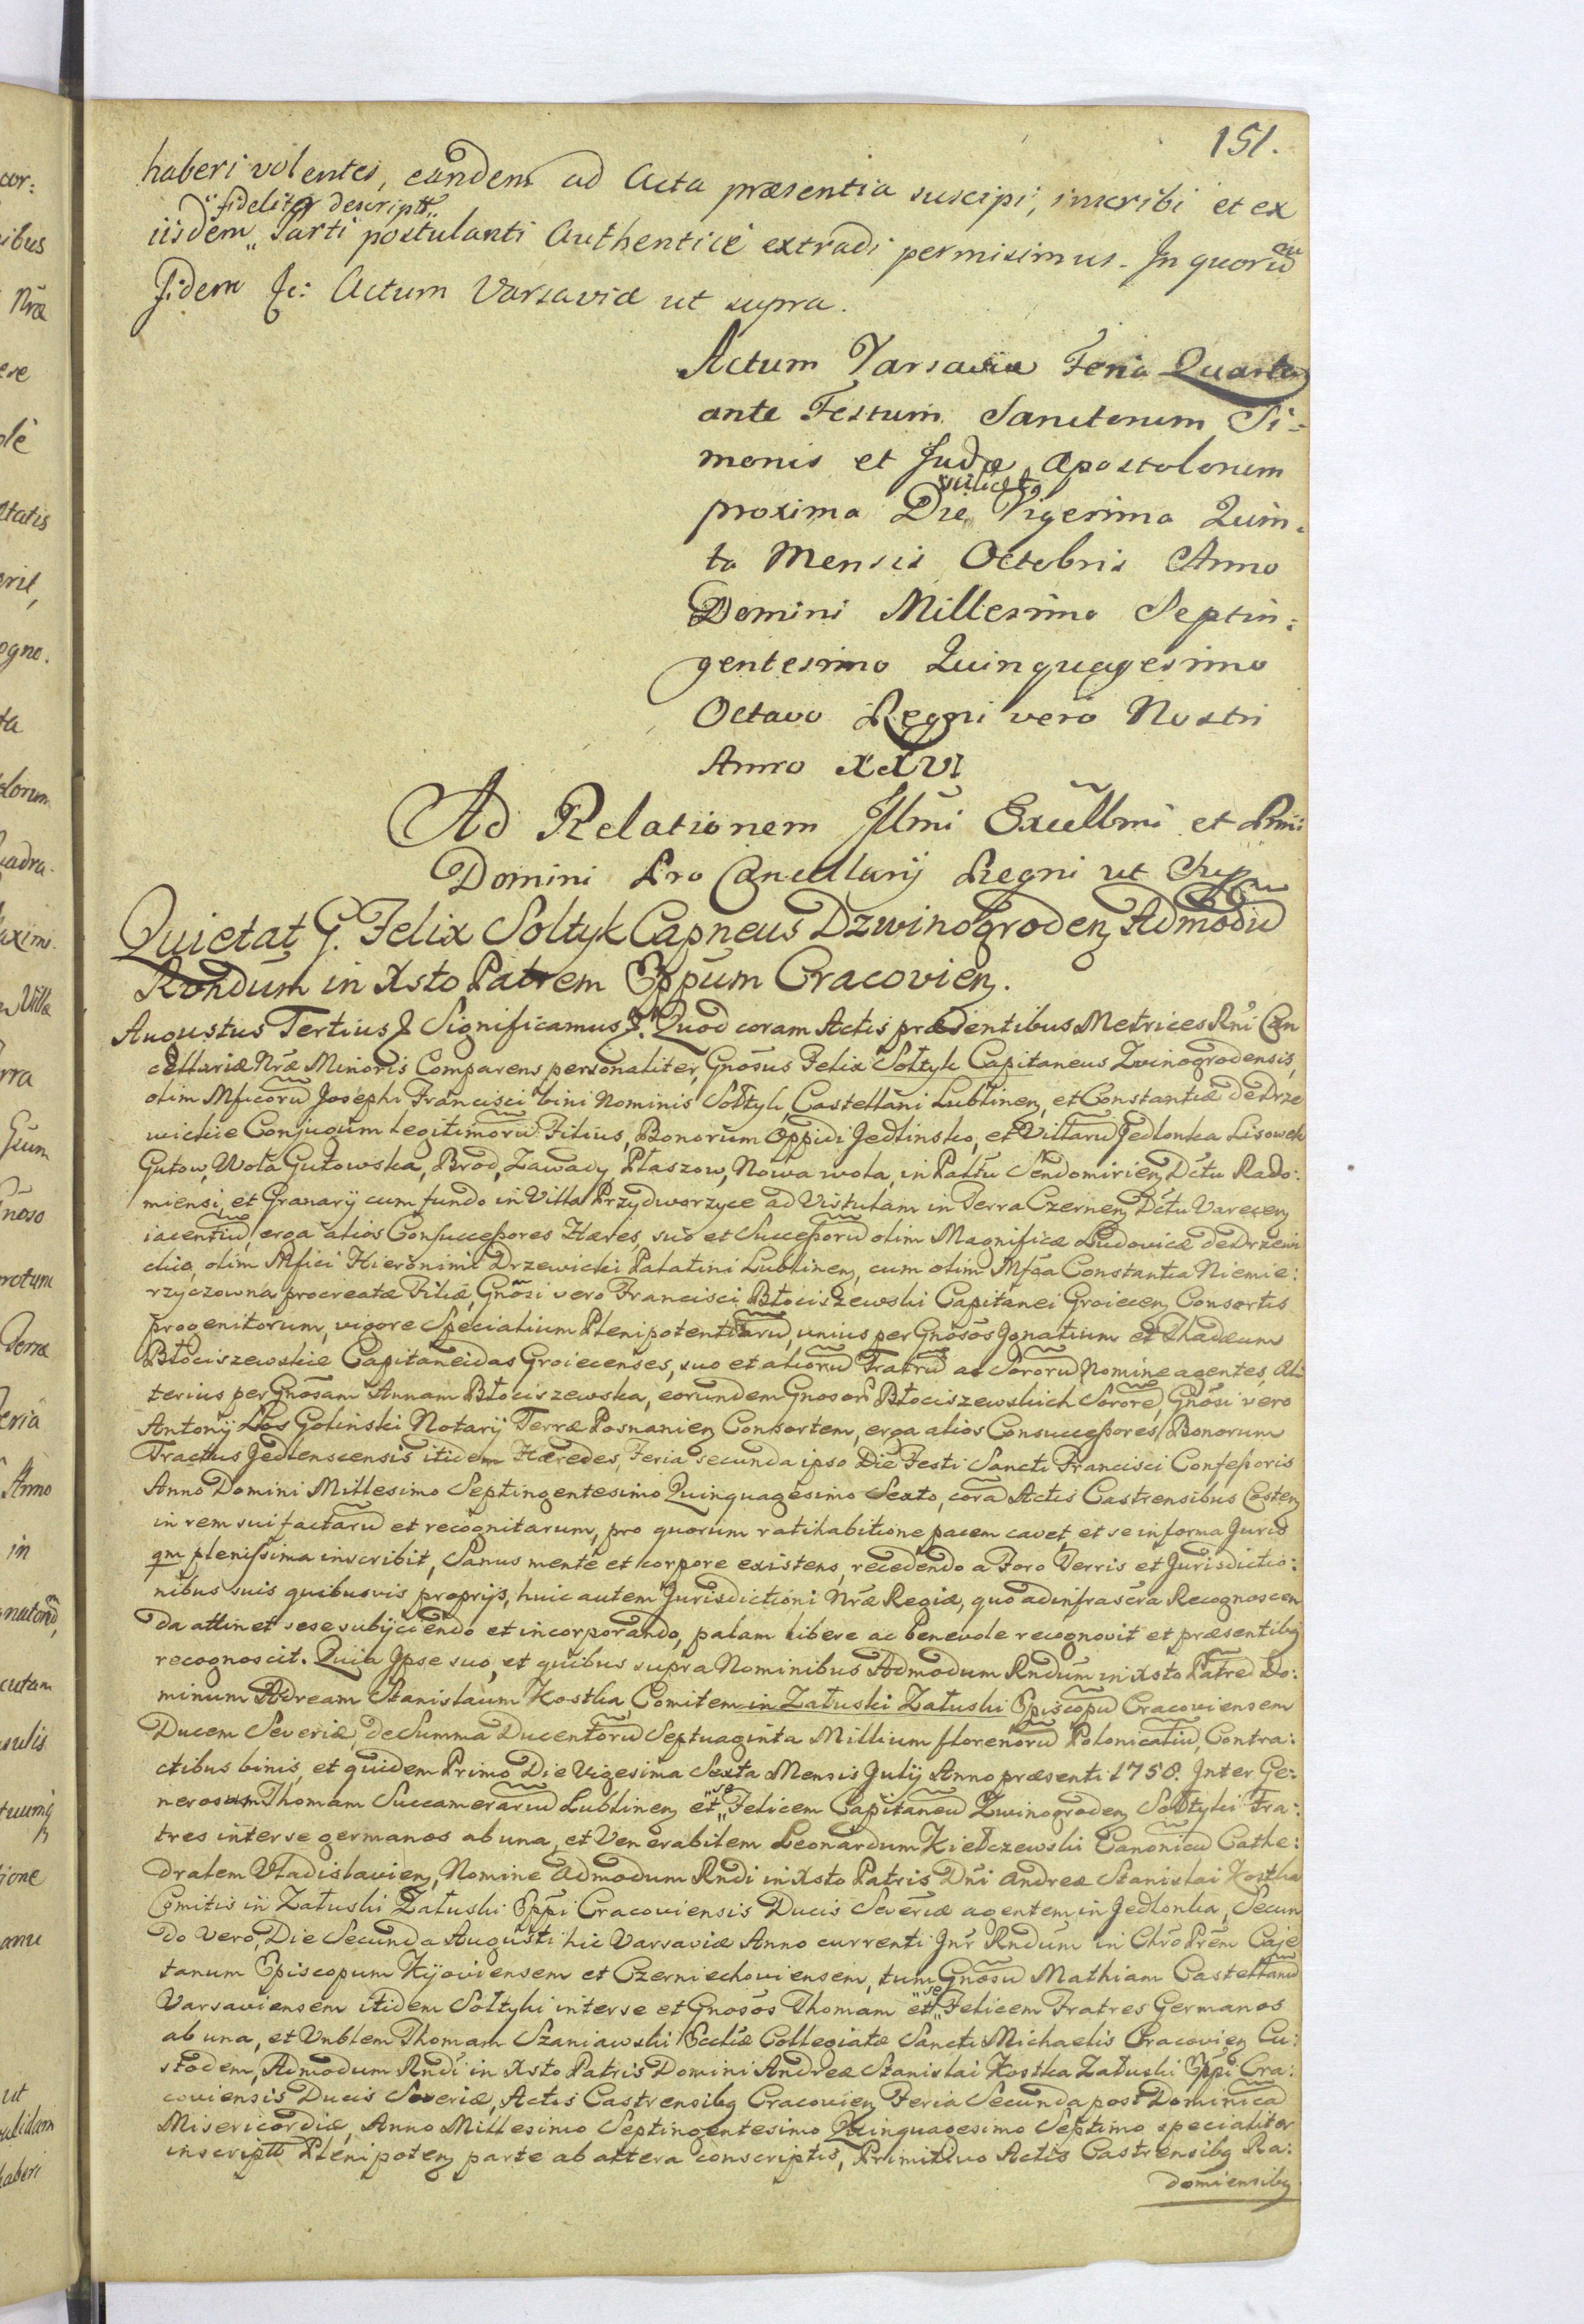 151.
haberi volentes, eandem ad Acta præsentia suscipi, inscribi et ex
fidelitr descriptt
iisdem Parti postulanti Authenticè extradi permisimus. In quorũ
Fidem &c: Actum Varsaviæ ut supra.
Actum Varsaviæ Feria Quarta
ante Festum Sanctorum Si=
monis et Judæ Apostolorum
scilicet
proxima Die Vigesima Quin=
ta Mensis Octobris Anno
Domini Millesimo Septin=
gentesimo Quinquagesimo
Octavo Regni vero Nostri
Anno XXVI
Ad Relationem Illmi Excellmi et Rmi
Domini Pro Cancellarij Regni ut
Quietat G. Felix Soltyk Capneus Dzwinogroden Admodũ
Rendum in Xsto Patrem Eppum Cracovien.
Augustus Tertius & Significamus &. Quod coram Actis præsentibus Metrices Rni Can
cellariæ Nræ Minoris Comparens personaliter, Gnosus Felix Sołtyk Capitaneus Zwinogrodensis,
olim Mficorũ Josephi Francisci bini Nominis Sołtyk, Castellani Lublinen, et Constantiæ de Drze
wickie Conjugum legitimorũ Filius, Bonorum Oppidi Jedlinsko, et Villarũ Jedlonka Lisowek
Gutow, Wola Gutowska, Brod, Zawady, Płaszow, Nowa wola, in Palttu Sendomirien Dctu Rado:
miensi, et Granarij cum fundo in Villa Przydworzyce ad Vistulam in Terra Czernen Dctu Varecen
iacentiũ, erga alios Consuccessores Hæres, suo et Successorũ olim Magnificæ Ludovicæ de Drzewi
ckie, olim Mfici Hieronimi Drzewicki Palatini Lublinen, cum olim Mfca Constantia Niemie:
rzyczowna procreatæ Filiæ, Gnosi vero Francisci Błociszewski Capitanei Groiecen Consortis
progenitorum, vigore Specialium Plenipotentiarũ, unius per Gnosos Ignatium et Thadeum
Błociszewskie Capitaneidas Groiecenses, suo et aliorũ Fratrũ ac Sororũ Nomine agentes, al
terius per Gnosam Annam Błociszewska, eorundem Gnosor Błociszewskich Sorore, Gnosi vero
Antonij Les Golinski Notarij Terræ Posnanien Consortem, erga alios Consuccessores Bonorum
Tractus Jedlenscensis itidem Hæredes, Feria secunda ipso Die Festi Sancti Francisci Confessoris
Anno Domini Millesimo Septingentesimo Quinquagesimo Sexto, corã Actis Castrensibus Costen
in rem sui factarũ et recognitarum, pro quorum ratihabitione pacem cavet, et se in forma Juris
qm plenissima inscribit, Sanus mente et corpore existens, recedendo a Foro Terris et Jurisdictio:
nibus suis quibusvis proprijs, huic autem Jurisdictioni Nræ Regiæ, quo ad infrascra Recognoscen
da attinet sese subijciendo et incorporando, palam libere ac benevole recognovit et præsentibq
recognoscit. Quia Ipse suo, et quibus supra Nominibus Admodum Rndum in Xsto Patrẽ Do:
minum Adream Stanislaum Kostka Comitem in Załuski Załuski Episcopũ Cracoviensem
Ducem Severiæ, de Summa Ducentorũ Septuaginta Millium florenorũ Polonicaliũ, Contra:
ctibus binis, et quidem Primo Die Vigesima Sexta Mensis Julij Anno præsenti 1758. Inter Ge:
nerosum Thomam Succamerariũ Lublinen et "se" Felicem Capitaneũ Zwinogroden Sołtyki Fra:
tres inter se germanos ab una, et Venerabilem Leonardum Kiełczewski Canonicũ Cathe:
dralem Vladislavien, Nomine Admodum Rndi in Xsto Patris Dni Andreæ Stanislai Kostka
Comitis in Załuski Załuski Eppi Cracoviensis Ducis Severiæ agentem in Jedlonka, Secun
do vero, Die Secunda Augusti hic Varsaviæ Anno currenti Intr Rndum in Chro Prem Caje
tanum Episcopum Kijoviensem et Czerniechoviensem, tum Gnosũ Mathiam Castellanũ
Varsaviensem itidem Sołtyki inter se et Gnosos Thomam et "se" Felicem Fratres Germanos
ab una, et Vnblem Thomam Szaniawski Eccliæ Collegiatæ Sancti Michaelis Cracovien Cu:
stodem, Admodum Rndi in Xsto Patris Domini Andreæ Stanislai Kostka Załuski Eppi Cra:
coviensis Ducis Severiæ, Actis Castrensibq Cracovien Feria Secunda post Dominicã
Misericordiæ, Anno Millesimo Septingentesimo Quinquagesimo Septimo specialiter
inscriptt Plenipoten parte ab altera conscriptis, Primitivo Actis Castrensibq Ra:
domiensibq